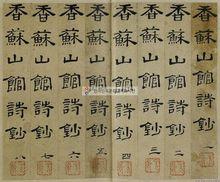 香蘇山館詩鈔 一
香蘇山館詩鈔 二
香蘇山館詩鈔 三
香蘇山館詩鈔 四
香蘇山館詩鈔 五
香蘇山館詩鈔 六
香蘇山館詩鈔 七
香蘇山館詩鈔 八